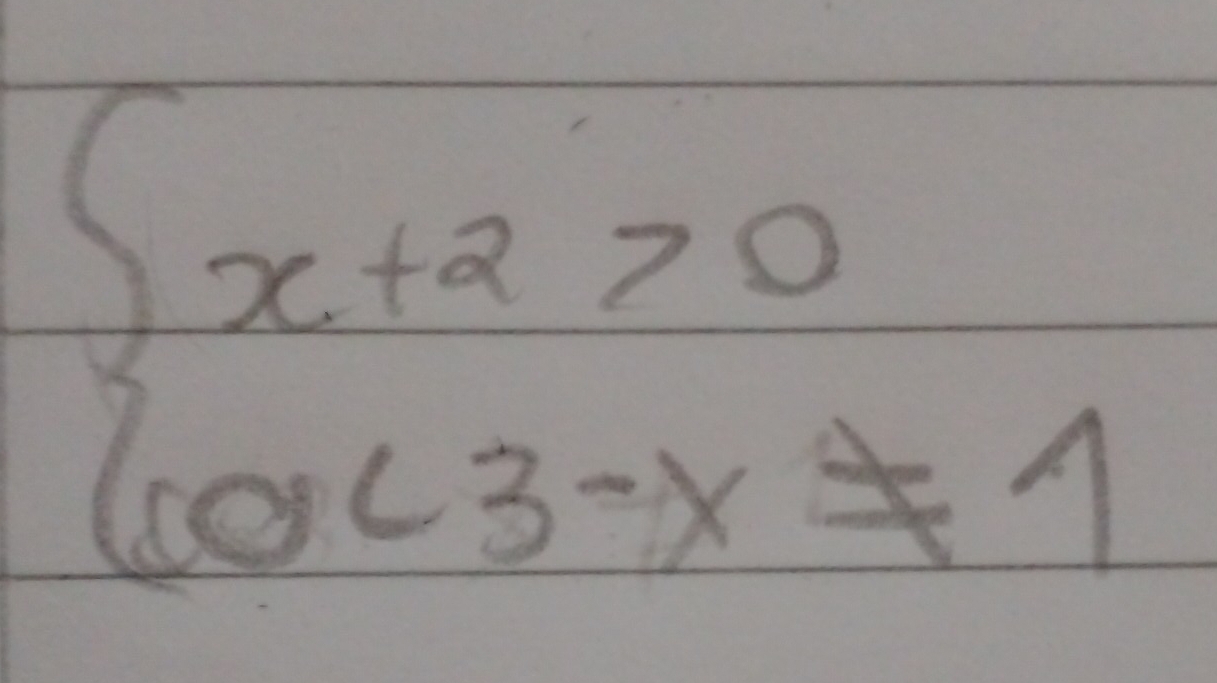 x+2 > 0
0 < 3-x ≠ 1